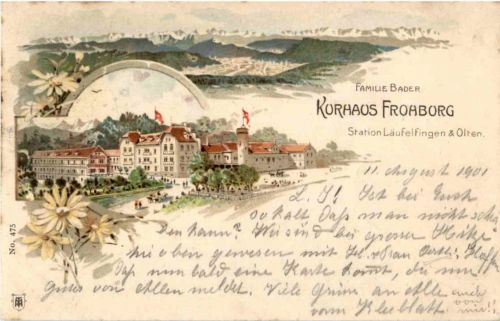 FAMILIE BADER
KURHAUS FROHBURG
STATION LÄUFELFINGEN & OLTEN.
11. August 1901
L. J! Ist bei Euch
so kalt daß man nicht
kann? Wir sind bei grosser Hitze
hie oben gewesen mit
Daß nun bald eine Karte kommt, die nur
Gutes von Allen meldet. Viele Grüsse an Alle auch
vom Kleeblatt. von mir!!
No. 475